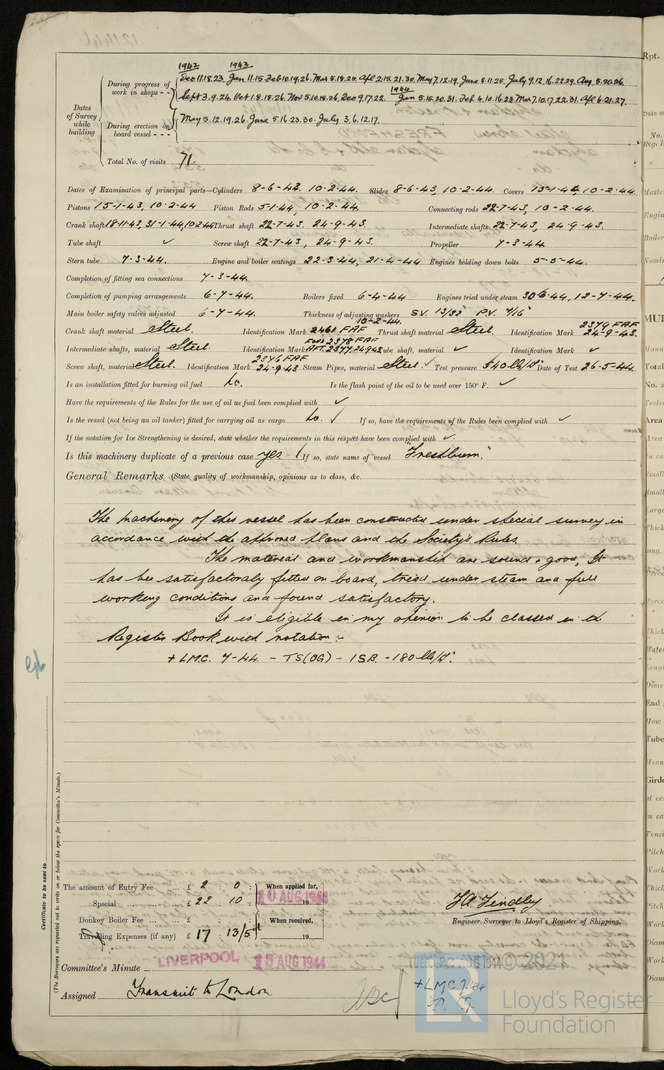 1942 1943
During progress of work in shops - - Dec 11.18.23. Jan 11.15. Feb 10.19.26. Mar 5.18.25. Apl 2.15.21.30. May 7.12.19. June 8.11.25. July 9.12.16.22.29. Aug 5.20.26.
1944
Sept 3.9.24. Oct 1.8.15.26. Nov 5.10.18.26. Dec 9.17.22. Jan 5.15.20.31. Feb 4.10.16.23. Mar 7.10.17.22.31. Apl 6.21.27.
Dates of Survey while building
During erection on board vessel - - - May 5.12.19.26. June 5.16.23.30. July 3.6.12.17.
Total No. of visits 71.
Dates of Examination of principal parts—Cylinders 8-6-43, 10-2-44. Slides 8-6-43, 10-2-44. Covers 10-2-44.
Pistons 15-1-43, 10-2-44 Piston Rods 5-1-44, 10-2-44. Connecting rods 22-7-43, 10-2-44.
Crank shaft 18-11-43, 31-1-44, 10-2-44 Thrust shaft 22-7-43. 24-9-43. Intermediate shafts 22-7-43, 24-9-43.
Tube shaft ✓ Screw shaft 22-7-43, 24-9-43. Propeller 7-3-44.
Stern tube 7-3-44. Engine and boiler seatings 22-3-44, 21-4-44 Engines holding down bolts 5-5-44.
Completion of fitting sea connections 7-3-44.
Completion of pumping arrangements 6-7-44. Boilers fixed 6-4-44 Engines tried under steam 30-6-44, 12-7-44.
Main boiler safety valves adjusted 6-7-44. Thickness of adjusting washers S.V. 13/32" P.V. 7/16"
Crank shaft material Steel. Identification Mark 2461 FAF 10-2-44. Thrust shaft material Steel. Identification Mark 2379 FAF 24-9-43.
Intermediate shafts, material Steel. Identification Marks 2378 FAF AFT. 2377, 24-9-43 Tube shaft, material ✓ Identification Mark ✓
Screw shaft, material Steel. Identification Mark 2376 FAF 24-9-43 Steam Pipes, material Steel ✓ Test pressure 540 lb/□" Date of Test 26-5-44.
Is an installation fitted for burning oil fuel No. Is the flash point of the oil to be used over 150° F. ✓
Have the requirements of the Rules for the use of oil as fuel been complied with ✓
Is the vessel (not being an oil tanker) fitted for carrying oil as cargo. No. ✓ If so, have the requirements of the Rules been complied with ✓
If the notation for Ice Strengthening is desired, state whether the requirements in this respect have been complied with ✓
Is this machinery duplicate of a previous case yes If so, state name of vessel "Freshburn."
General Remarks (State quality of workmanship, opinions as to class, &c.
The machinery of this vessel has been constructed under special survey in
accordance with the approved plans and the Society's Rules
The material and workmanship are sound & good, It
has been satisfactorily fitted on board, tried under steam and full
working conditions and found satisfactory.
It is eligible in my opinion to be classed in the
Register Book with notation :-
+ LMC. 7-44. - TS(OG) - 1SB. - 180 lb/□".
Certificate to be sent to
(The Surveyors are requested not to write on or below the space for Committee's Minute.)
The amount of Entry Fee ... £ 2 : 0 : When applied for,
Special ... £ 22 : 10 : 10 AUG 19
Donkey Boiler Fee ... £ When received,
Travelling Expenses (if any) £ 17 : 13/5d 19
Engineer Surveyor to Lloyd's Register of Shipping.
LIVERPOOL 15 AUG 1944
Committee's Minute
Assigned Transmit to London
+ LMC 7.44
© 2021
Lloyd's Register
Foundation